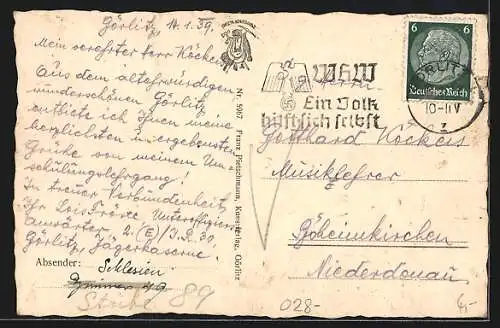 Görlitz, 14.1.39.
Mein verehrter Herr Köckeis!
Aus dem altehrwürdigen
wunderschönen Görlitz
entbiete ich Ihnen meine
herzlichsten u. ergebensten
Grüße von meinem Um-
schulungslehrgang!
In treuer Verbundenheit
Ihr Unteroffiziers
anwärter 2. (E)/I.R. 30.
Görlitz, Jägerkaserne.
Absender: Schlesien
Zimmer
Stube 89
Nr. 5967 Franz Pietschmann, Kunstverlag, Görlitz
WHW
Ein Volk
hilft sich selbst
6 6
Deutsches Reich
10-11 V
z
Herrn
Gotthard Köckeis
Musiklehrer
Böheimkirchen
Niederdonau
028-
6,-